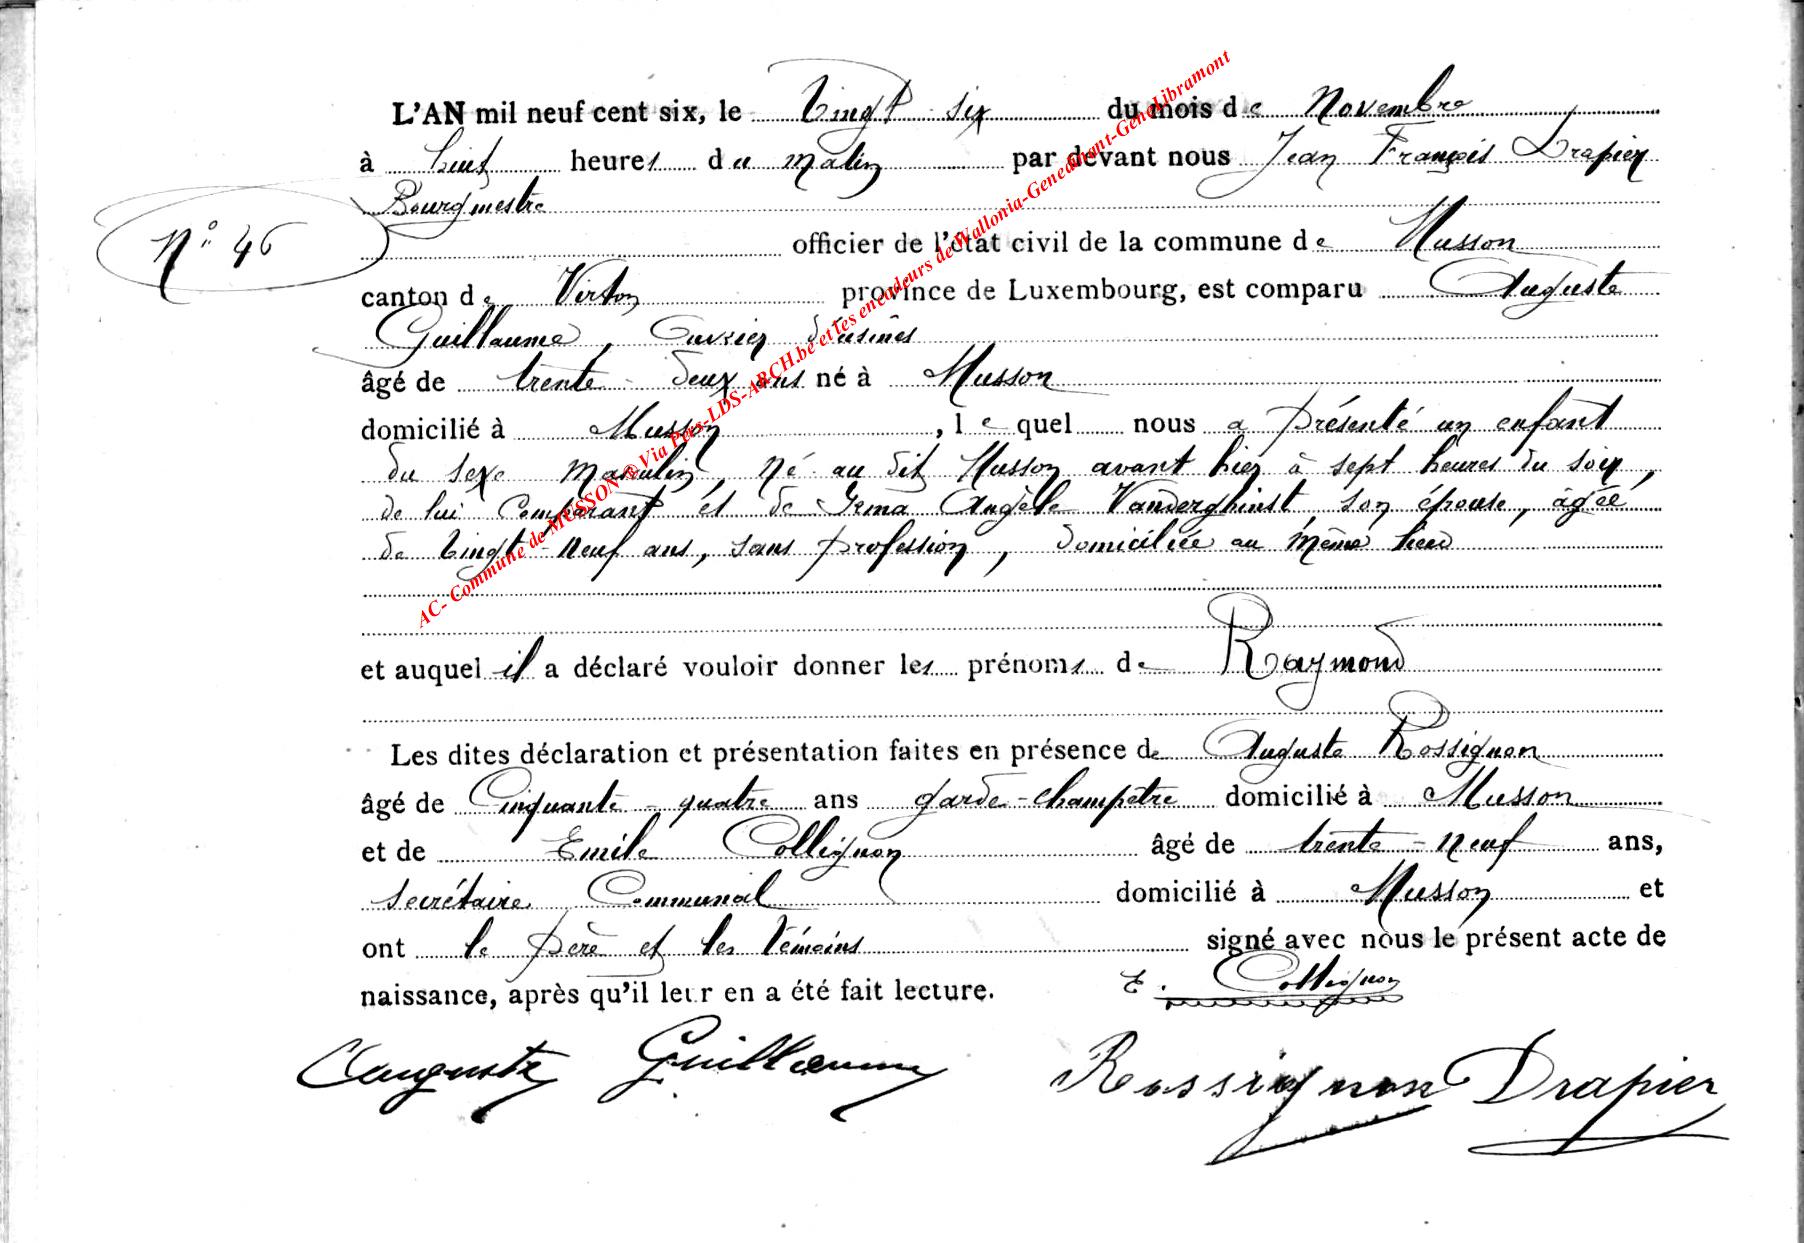 L'AN mil neuf cent six, le Vingt six du mois de Novembre
à huit heures du matin par devant nous Jean François Drapier
Bourgmestre
N° 46
officier de l'état civil de la commune de Musson
canton de Virton province de Luxembourg, est comparu Auguste
Guillaume, Ouvrier d'usines
âgé de trente-deux ans né à Musson
domicilié à Musson, lequel nous a présenté un enfant
du sexe masculin, né au dit Musson avant hier à sept heures du soir,
de lui Comparant et de Irma Angèle Vanderghinst son épouse, âgée
de Vingt-neuf ans, sans profession, domiciliée au même lieu
et auquel il a déclaré vouloir donner les prénoms de Raymond
Les dites déclaration et présentation faites en présence de Auguste Rossignon
âgé de Cinquante-quatre ans garde-champêtre domicilié à Musson
et de Emile Collignon âgé de trente-neuf ans,
secrétaire Communal domicilié à Musson et
ont le père et les témoins signé avec nous le présent acte de
naissance, après qu'il leur en a été fait lecture. E. Collignon
Auguste Guillaume Rossignon Drapier
AC- Commune de MUSSON ® Via Pers-LDS-ARCH.be et les encodeurs de Wallonia-Genedinant-GeneLibramont